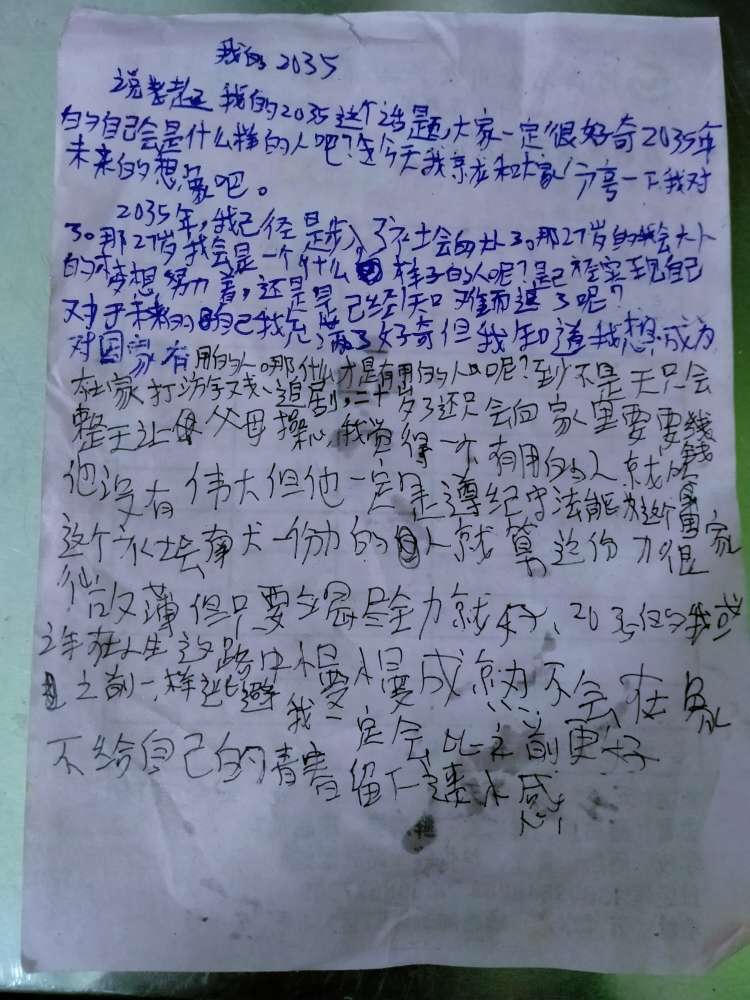 我的2035
说起 我的2035这个话题,大家一定很好奇2035年
的自己会是什么样的人吧?今天我就和大家分享一下我对
未来的想象吧。
2035年,我已径是步入了社会的 30那27岁的我会
30那27岁我会是一个什么样子的人呢?是已在实现自己
的梦想努力着,还是是已经知难而退了呢?
对于未来的自己我充满了好奇但我知道我想成为
对国家有用的人。那什么才是有用的人呢?至少不是天只会
在家打游戏追剧,二十岁了还只会向家里要要钱
整天让父母操心,我觉得一个有用的人就
他没有伟大但他一定是遵纪守法能为这个国家
这个社会献一份力的人就算这份力很
微薄但只要尽全力就好、2035的我
在人生这路中慢慢成熟不会在象
之前一样逃避 我一定会比之前更好
不给自己的青春留下遗憾